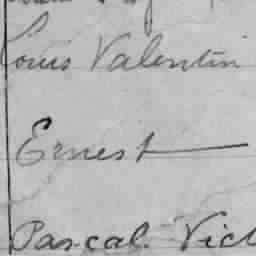 Louis Valentin
Ernest
Pascal. Vict